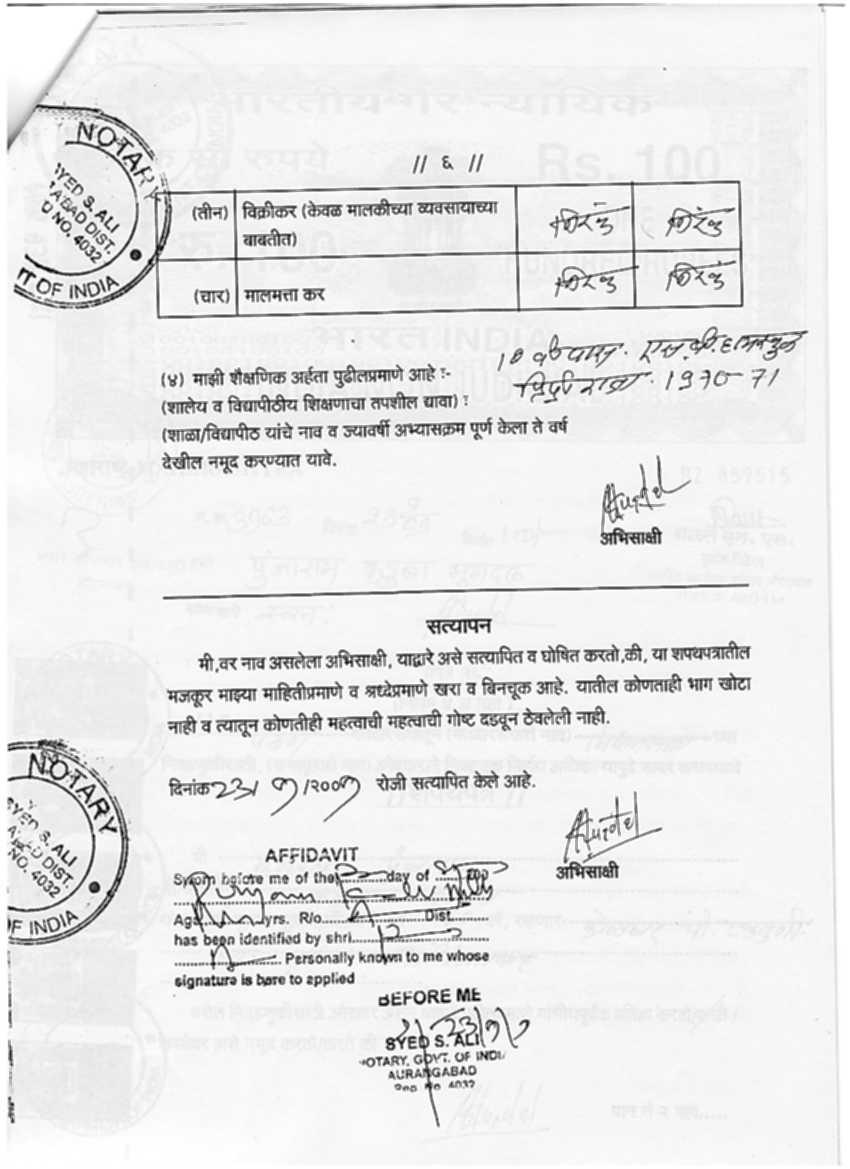 // ६ //
NOTARY
SYED S. ALI
A'BAD DIST.
NO. 4032
OF INDIA
(तीन) विक्रीकर (केवळ मालकीच्या व्यवसायाच्या बाबतीत) निरंक निरंक
(चार) मालमत्ता कर निरंक निरंक
१० वी पास.
1970-71
(४) माझी शैक्षणिक अर्हता पुढीलप्रमाणे आहे :-
(शालेय व विद्यापीठीय शिक्षणाचा तपशील द्यावा) :
(शाळा/विद्यापीठ यांचे नाव व ज्यावर्षी अभ्यासक्रम पूर्ण केला ते वर्ष
देखील नमूद करण्यात यावे.
अभिसाक्षी
सत्यापन
मी,वर नाव असलेला अभिसाक्षी, याद्वारे असे सत्यापित व घोषित करतो,की, या शपथपत्रातील
मजकूर माझ्या माहितीप्रमाणे व श्रध्देप्रमाणे खरा व बिनचूक आहे. यातील कोणताही भाग खोटा
नाही व त्यातून कोणतीही महत्वाची महत्वाची गोष्ट दडवून ठेवलेली नाही.
दिनांक 23/ 9/२००9 रोजी सत्यापित केले आहे.
अभिसाक्षी
NOTARY
SYED S. ALI
A'BAD DIST.
NO. 4032
OF INDIA
AFFIDAVIT
Sworn before me of the.......day of .......200
Age.......yrs. R/o.......Dist.......
has been identified by shri.......
....... Personally known to me whose
signature is here to applied
BEFORE ME
SYED S. ALI
NOTARY, GOVT. OF INDIA
AURANGABAD
Reg No 4032